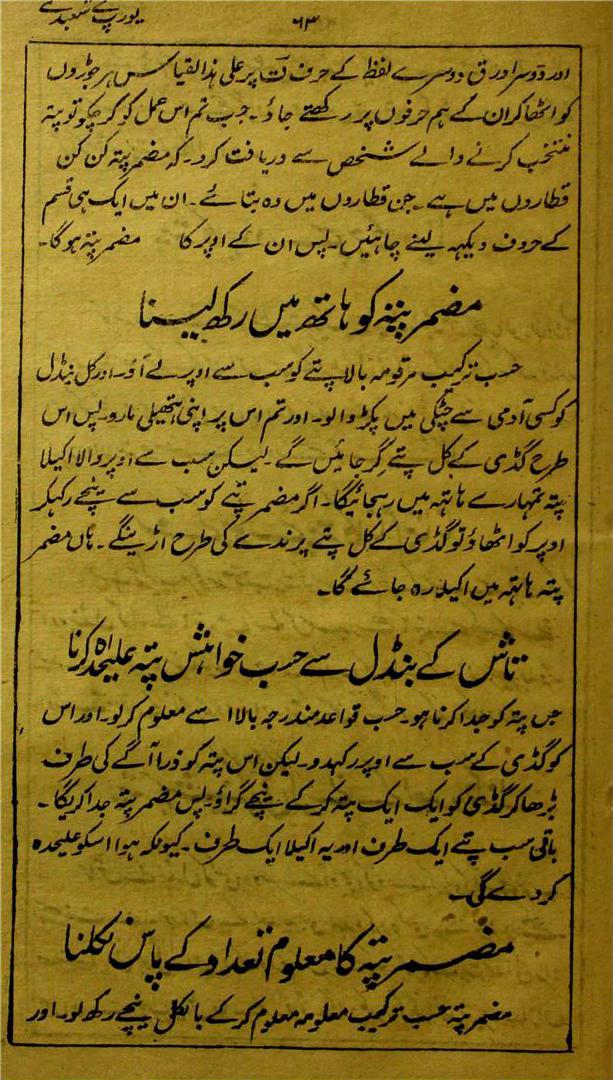 یورپ کے شعبدے
۶۳
اور دوسرا ورق دوسرے لفظ کے حرف ت پر علی ہذا القیاس ہر جوڑوں
کو اٹھا کر ان کے ہم حرفوں پر رکھتے جاؤ۔ جب تم اس عمل کو کر چکو تو پتہ
منتخب کرنے والے شخص سے دریافت کرو۔ کہ مضمر پتہ کن کن
قطاروں میں ہے۔ جن قطاروں میں وہ بتائے۔ ان میں ایک ہی قسم
کے حروف دیکھہ لینے چاہئیں۔ پس ان کے اوپر کا مضمر پتہ ہو گا۔
مضمر پتہ کو ہاتھ میں رکھ لینا
حسب ترکیب مرقومہ بالا پتے کو سب سے اوپر لے آؤ۔ اور کل بنڈل
کو کسی آدمی سے چٹکی میں پکڑوا لو۔ اور تم اس پر اپنی ہتھیلی مارو۔ پس اس
طرح گڈی کے کل پتے گر جائیں گے۔ لیکن سب سے اوپر والا اکیلا
پتہ تمہارے ہاتہہ میں رہجائیگا۔ اگر مضمر پتے کو سب سے نیچے رکہکر
اوپر کو اٹھاؤ تو گڈی کے کل پتے پرندے کی طرح اڑینگے۔ ہاں مضمر
پتہ ہاتہہ میں اکیلا رہ جائے گا۔
تاش کے بنڈل سے حسب خواہش پتہ علیحدہ کرنا
جس پتہ کو جدا کرنا ہو۔ حسب قواعد مندرجہ بالا اسے معلوم کر لو۔ اور اس
کو گڈی کے سب سے اوپر رکہدو۔ لیکن اس پتہ کو ذرا آگے کی طرف
بڑھا کر گڈی کو ایک ایک پتہ کر کے نیچے گراؤ۔ پس مضمر پتہ جدا گریگا۔
باقی سب پتے ایک طرف اور یہ اکیلا ایک طرف۔ کیونکہ ہوا اسکو علیحدہ
کر دے گی۔
مضمر پتہ کا معلوم تعداد کے پاس نکلنا
مضمر پتہ حسب ترکیب معلومہ معلوم کر کے بالکل نیچے رکھ لو۔ اور